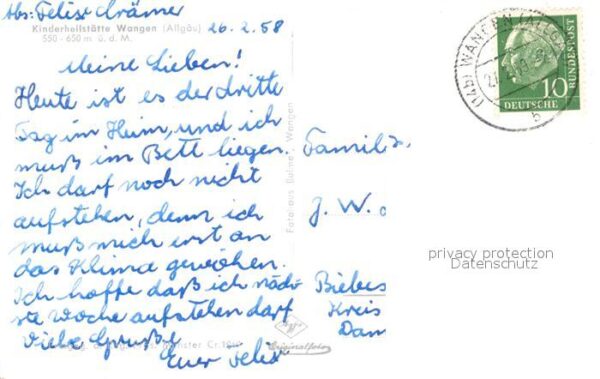 Abs: Felix Crämer
Kinderheilstätte Wangen (Allgäu)
550-650 m ü. d. M.
26.2.58
Meine Lieben!
Heute ist es der dritte
Tag im Heim, und ich
muß im Bett liegen.
Ich darf noch nicht
aufstehen, denn ich
muß mich erst an
das Klima gewöhen.
Ich hoffe daß ich näch
ste Woche aufstehen darf
Viele Grüße
Euer Felix
Foto: aus Wangen
Originalfoto
(14b) WANGEN (ALLGÄU)
b
10
DEUTSCHE
BUNDESPOST
Famili
J. W.
Biebes
Kreis
Dam
privacy protection
Datenschutz